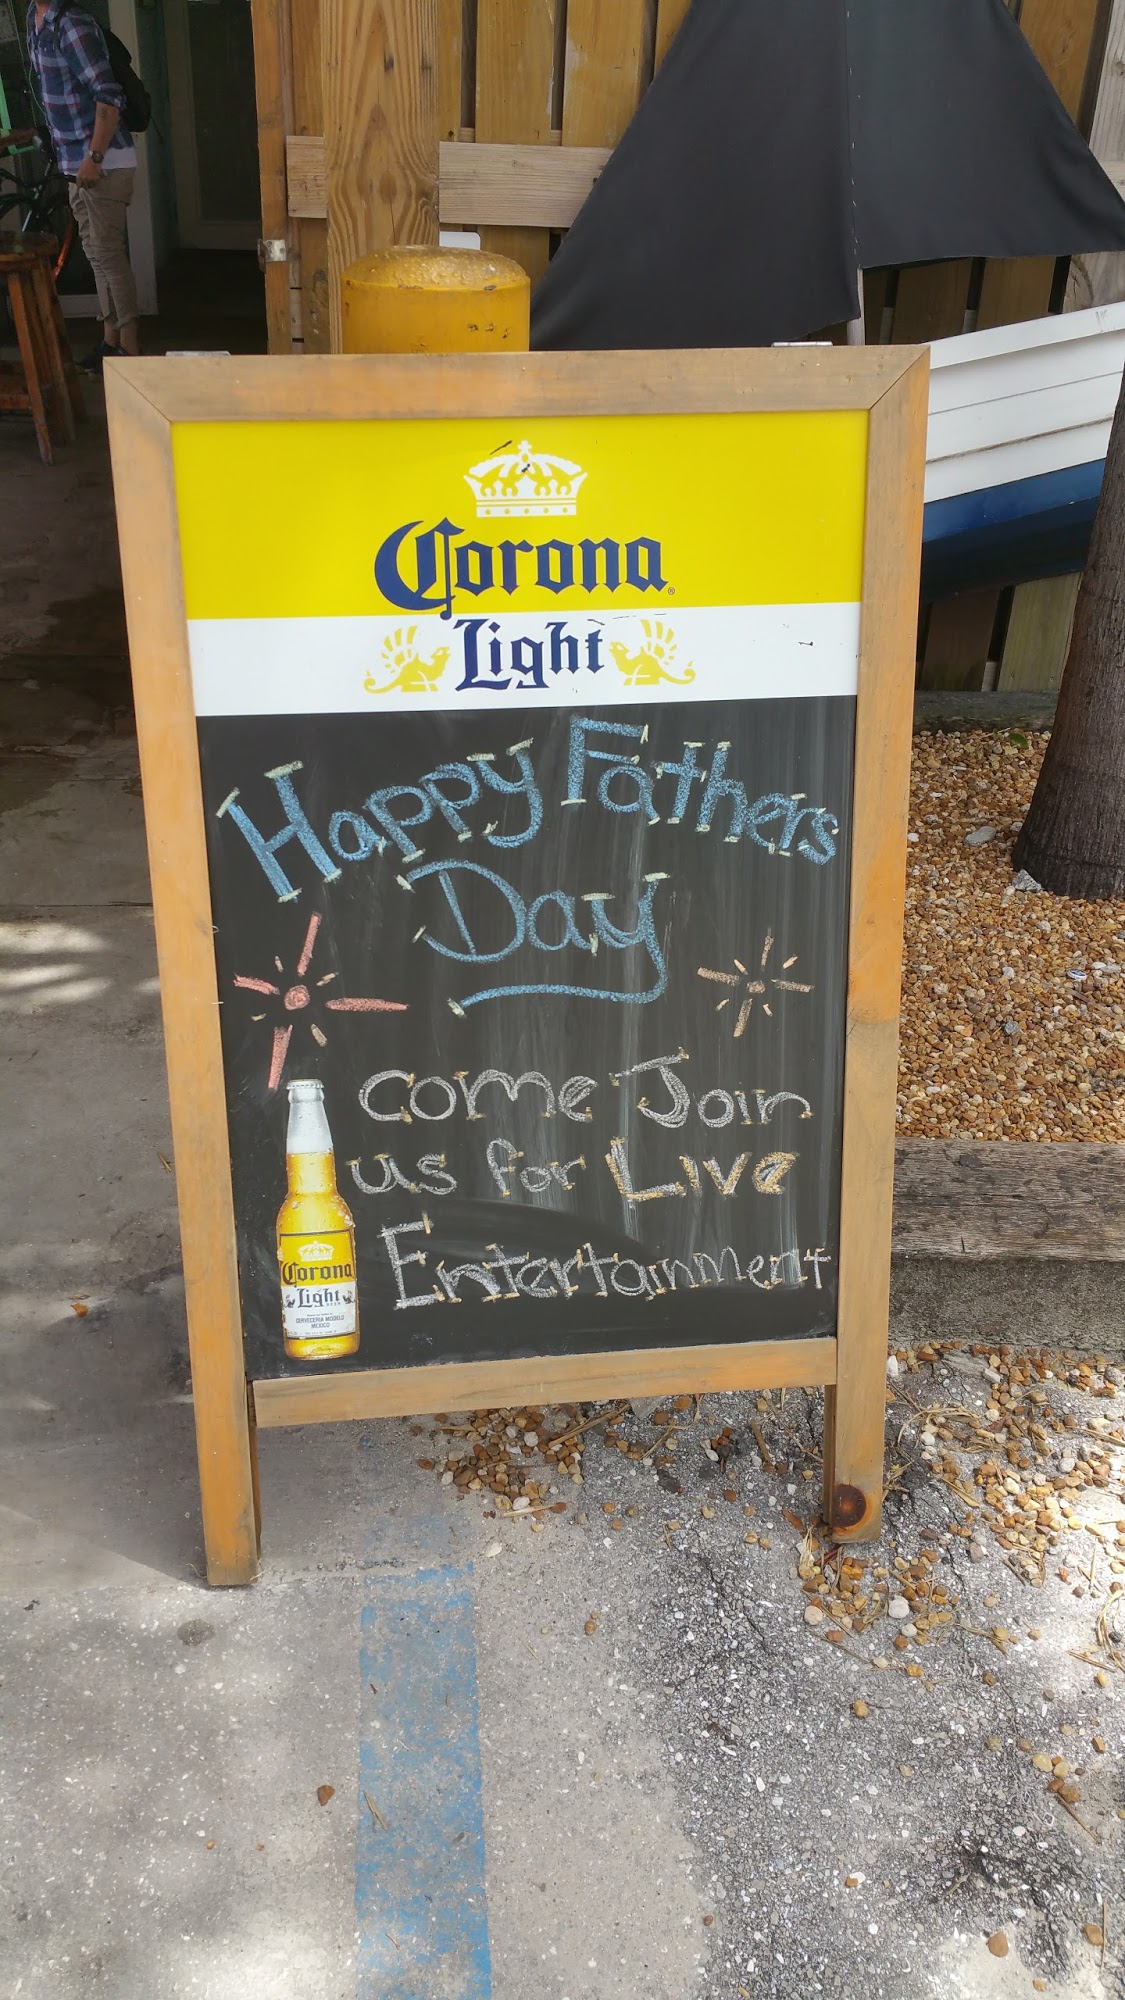 Corona
Light
Happy Fathers
Day
Come Join
us for Live
Entertainment
Corona
Light
BEER
CERVECERIA MODELO
MEXICO